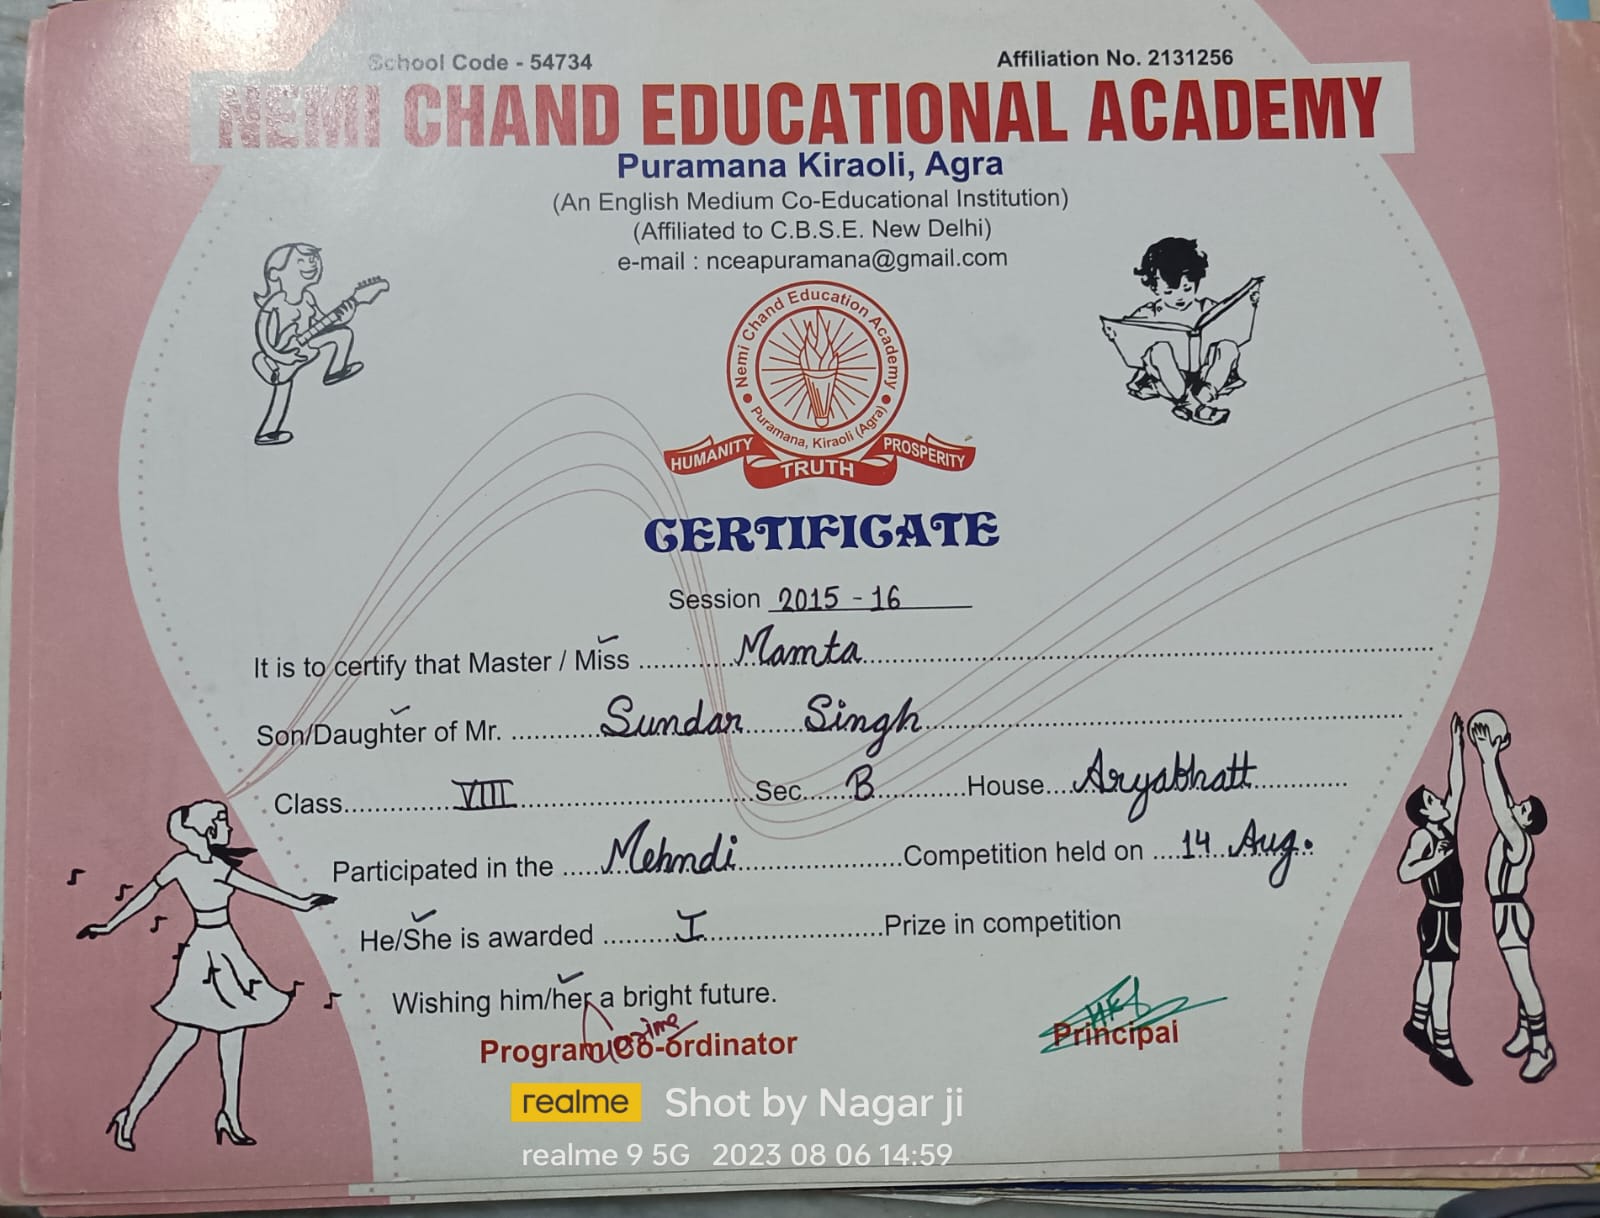 School Code - 54734 Affiliation No. 2131256
NEMI CHAND EDUCATIONAL ACADEMY
Puramana Kiraoli, Agra
(An English Medium Co-Educational Institution)
(Affiliated to C.B.S.E. New Delhi)
e-mail : nceapuramana@gmail.com
Nemi Chand Education Academy
Puramana, Kiraoli (Agra)
HUMANITY TRUTH PROSPERITY
CERTIFICATE
Session 2015 - 16
It is to certify that Master / Miss Mamta
Son/Daughter of Mr. Sundar Singh
Class VIII Sec. B House Aryabhatt
Participated in the Mehndi Competition held on 14 Aug.
He/She is awarded I Prize in competition
Wishing him/her a bright future.
Program Co-ordinator Principal
realme Shot by Nagar ji
realme 9 5G 2023 08 06 14:59